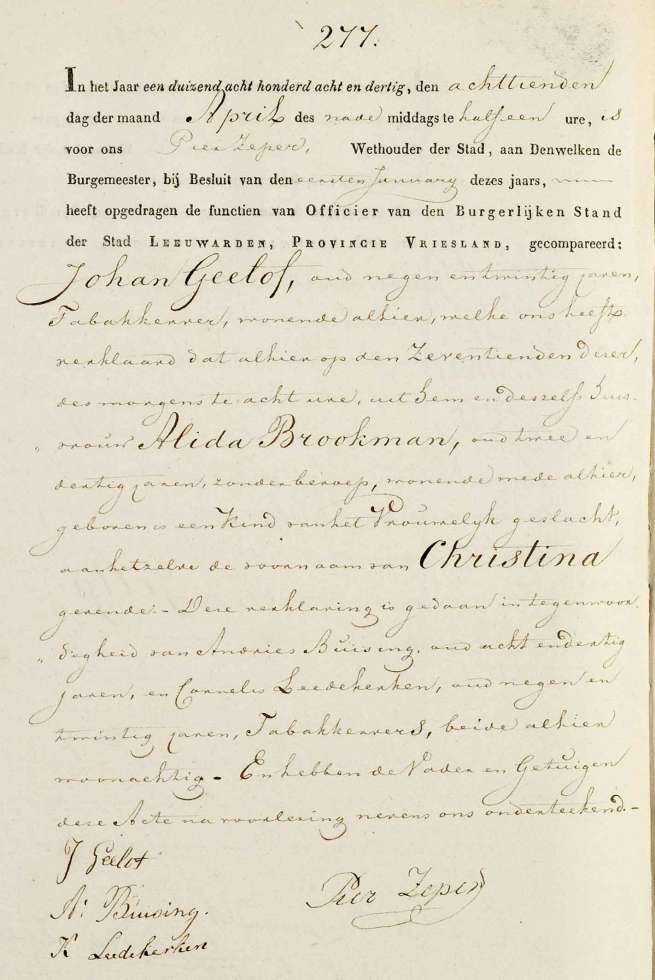 277.
In het Jaar een duizend acht honderd acht en dertig, den achttienden
dag der maand April des nade middags te half een ure, is
voor ons Pier Zeper, Wethouder der Stad, aan Denwelken de
Burgemeester, bij Besluit van den eersten January dezes jaars,
heeft opgedragen de functien van Officier van den Burgerlijken Stand
der Stad LEEUWARDEN, PROVINCIE VRIESLAND, gecompareerd:
Johan Geelof, oud negen en twintig jaren,
Tabakkerver, wonende alhier, welke ons heeft
verklaard dat alhier op den Zeventienden dezer,
des morgens te acht ure, uit hem en deszelfs huis-
„ vrouw Alida Brookman, oud twee en
dertig jaren, zonder beroep, wonende mede alhier,
geboren is een Kind van het Vrouwelyk geslacht,
aan hetzelve de voornaam van Christina
gevende. - Deze verklaring is gedaan in tegenwoor
„ digheid van Andries Buising, oud acht en dertig
jaren, en Cornelis Leedekerken, oud negen en
twintig jaren, Tabakkervers, beide alhier
woonachtig - En hebben de Vader en Getuigen
deze Acte na voorlezing nevens ons onderteekend. -
J Geelof
A: Buising.
Pier Zeper
K Leedekerken